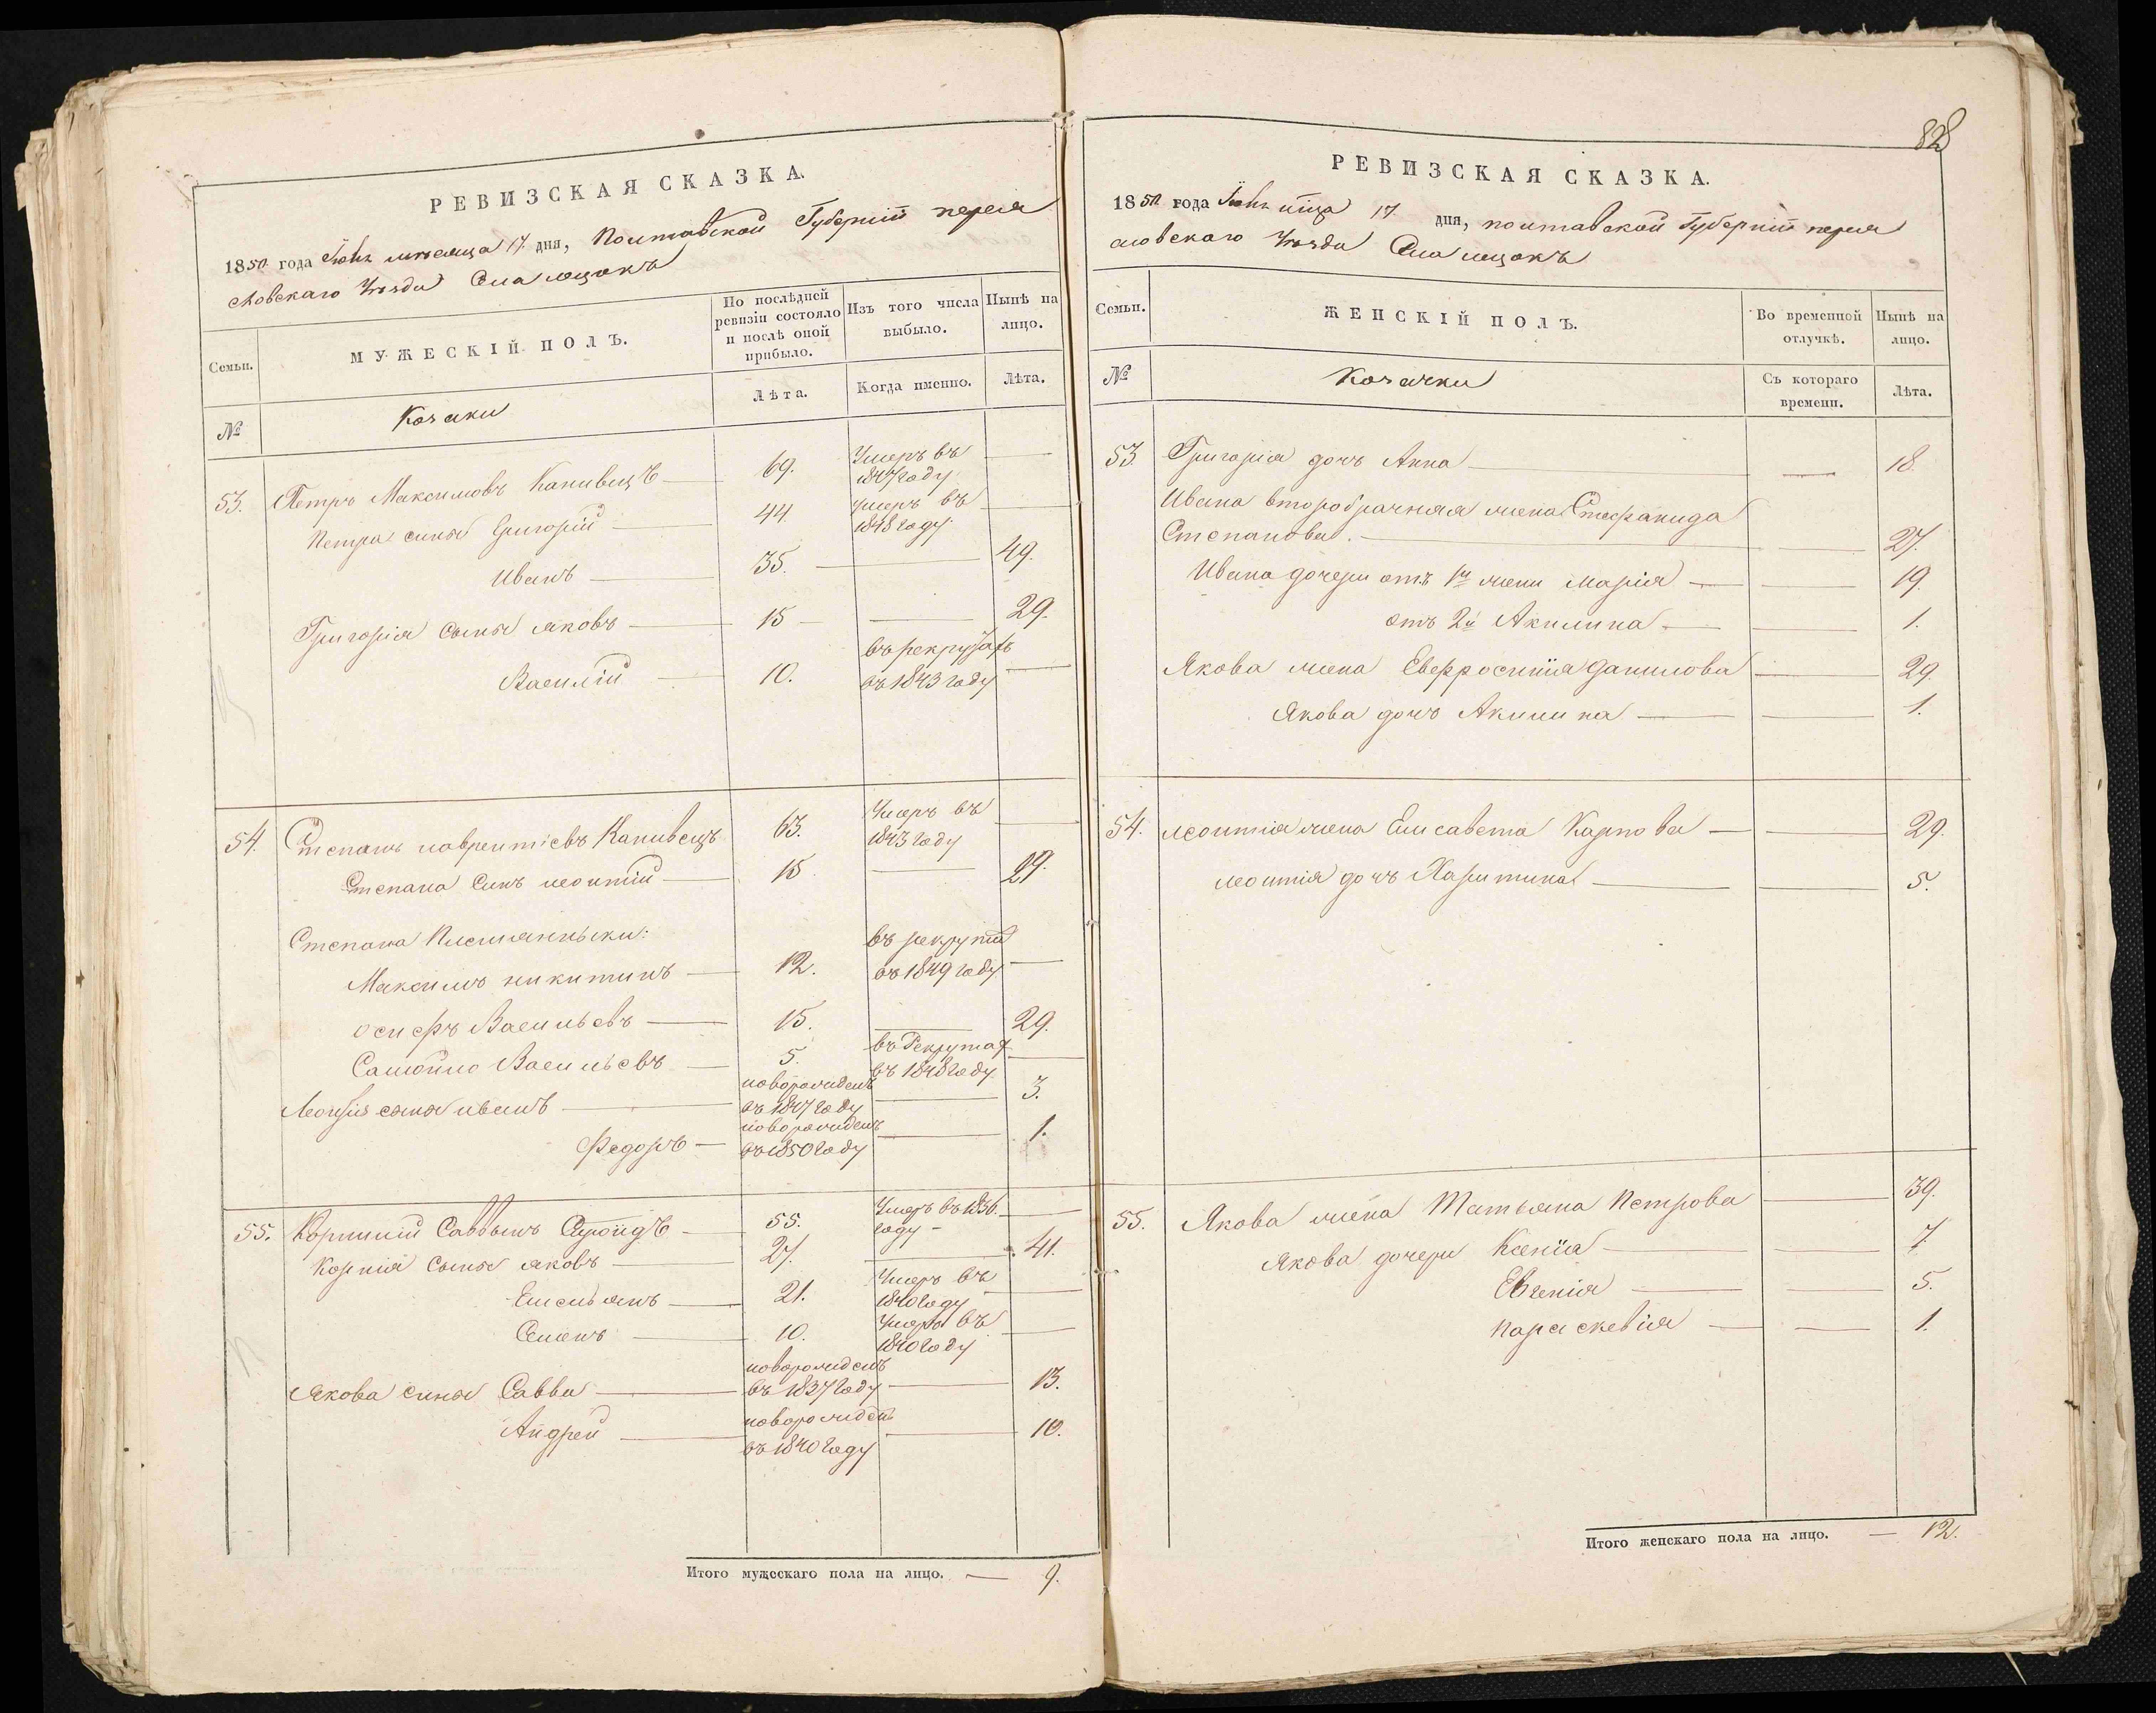 РЕВИЗСКАЯ СКАЗКА.
1850 года Іюнь месяца 17 дня, Полтавской Губерніи переяславскаго Уезда Села
Семьи.
МУЖЕСКІЙ ПОЛЪ.
По послѣдней ревизіи состояло и послѣ оной прибыло.
Изъ того числа выбыло.
Нынѣ на лицо.
№
Козаки
Лѣта.
Когда именно.
Лѣта.
53. Петръ Максимовъ Канивецъ 69. Умеръ въ 1847 году
Петра сыны Григорій 44. умеръ въ 1848 году
Иванъ 35. 49.
Григорія сыны яковъ 15 29.
Василій 10. въ рекрутахъ въ 1843 году
54. Степанъ лаврентіевъ Канивецъ 63. Умеръ въ 1843 году
Степана сынъ леонтій 15 29.
Степана Племянники:
Максимъ никитинъ 12. въ рекруты въ 1849 году
осифъ Васильевъ 15. 29.
Самойло Васильевъ 5. въ Рекрутах въ 1848 году
Леонтія сыны иванъ новорожденъ въ 1847 году 3.
Федоръ новорожденъ въ 1850 году 1.
55. Корнилій Саввинъ 55. Умеръ въ 1836. году
Корнія сыны яковъ 27. 41.
Емельянъ 21. Умеръ въ 1840 году
Семенъ 10. Умеръ въ 1840 году
Якова сыны Савва новорожденъ въ 1837 году 13.
Андрей новорожденъ въ 1840 году 10.
Итого мужескаго пола на лицо. — 9.
828
РЕВИЗСКАЯ СКАЗКА.
1850 года Іюнь мца 17 дня, полтавской Губерніи переяславскаго Уезда Села
Семьи.
ЖЕНСКІЙ ПОЛЪ.
Во временной отлучкѣ.
Нынѣ на лицо.
№
Козачки
Съ котораго времени.
Лѣта.
53. Григорія дочь Анна 18.
Ивана второбрачная жена Стефанида
Степанова. 27.
Ивана дочери отъ 1й жены Марія 19.
отъ 2й Акилина 1.
Якова жена Евфросинія данилова 29.
Якова дочь Акилина 1.
54. леонтія жена Елисавета Карпова 29.
леонтія дочь Харитина 5.
55. Якова жена Татьяна Петрова 39.
якова дочери Ксенія 7.
Евгенія 5.
параскевія 1.
Итого женскаго пола на лицо. — 12.